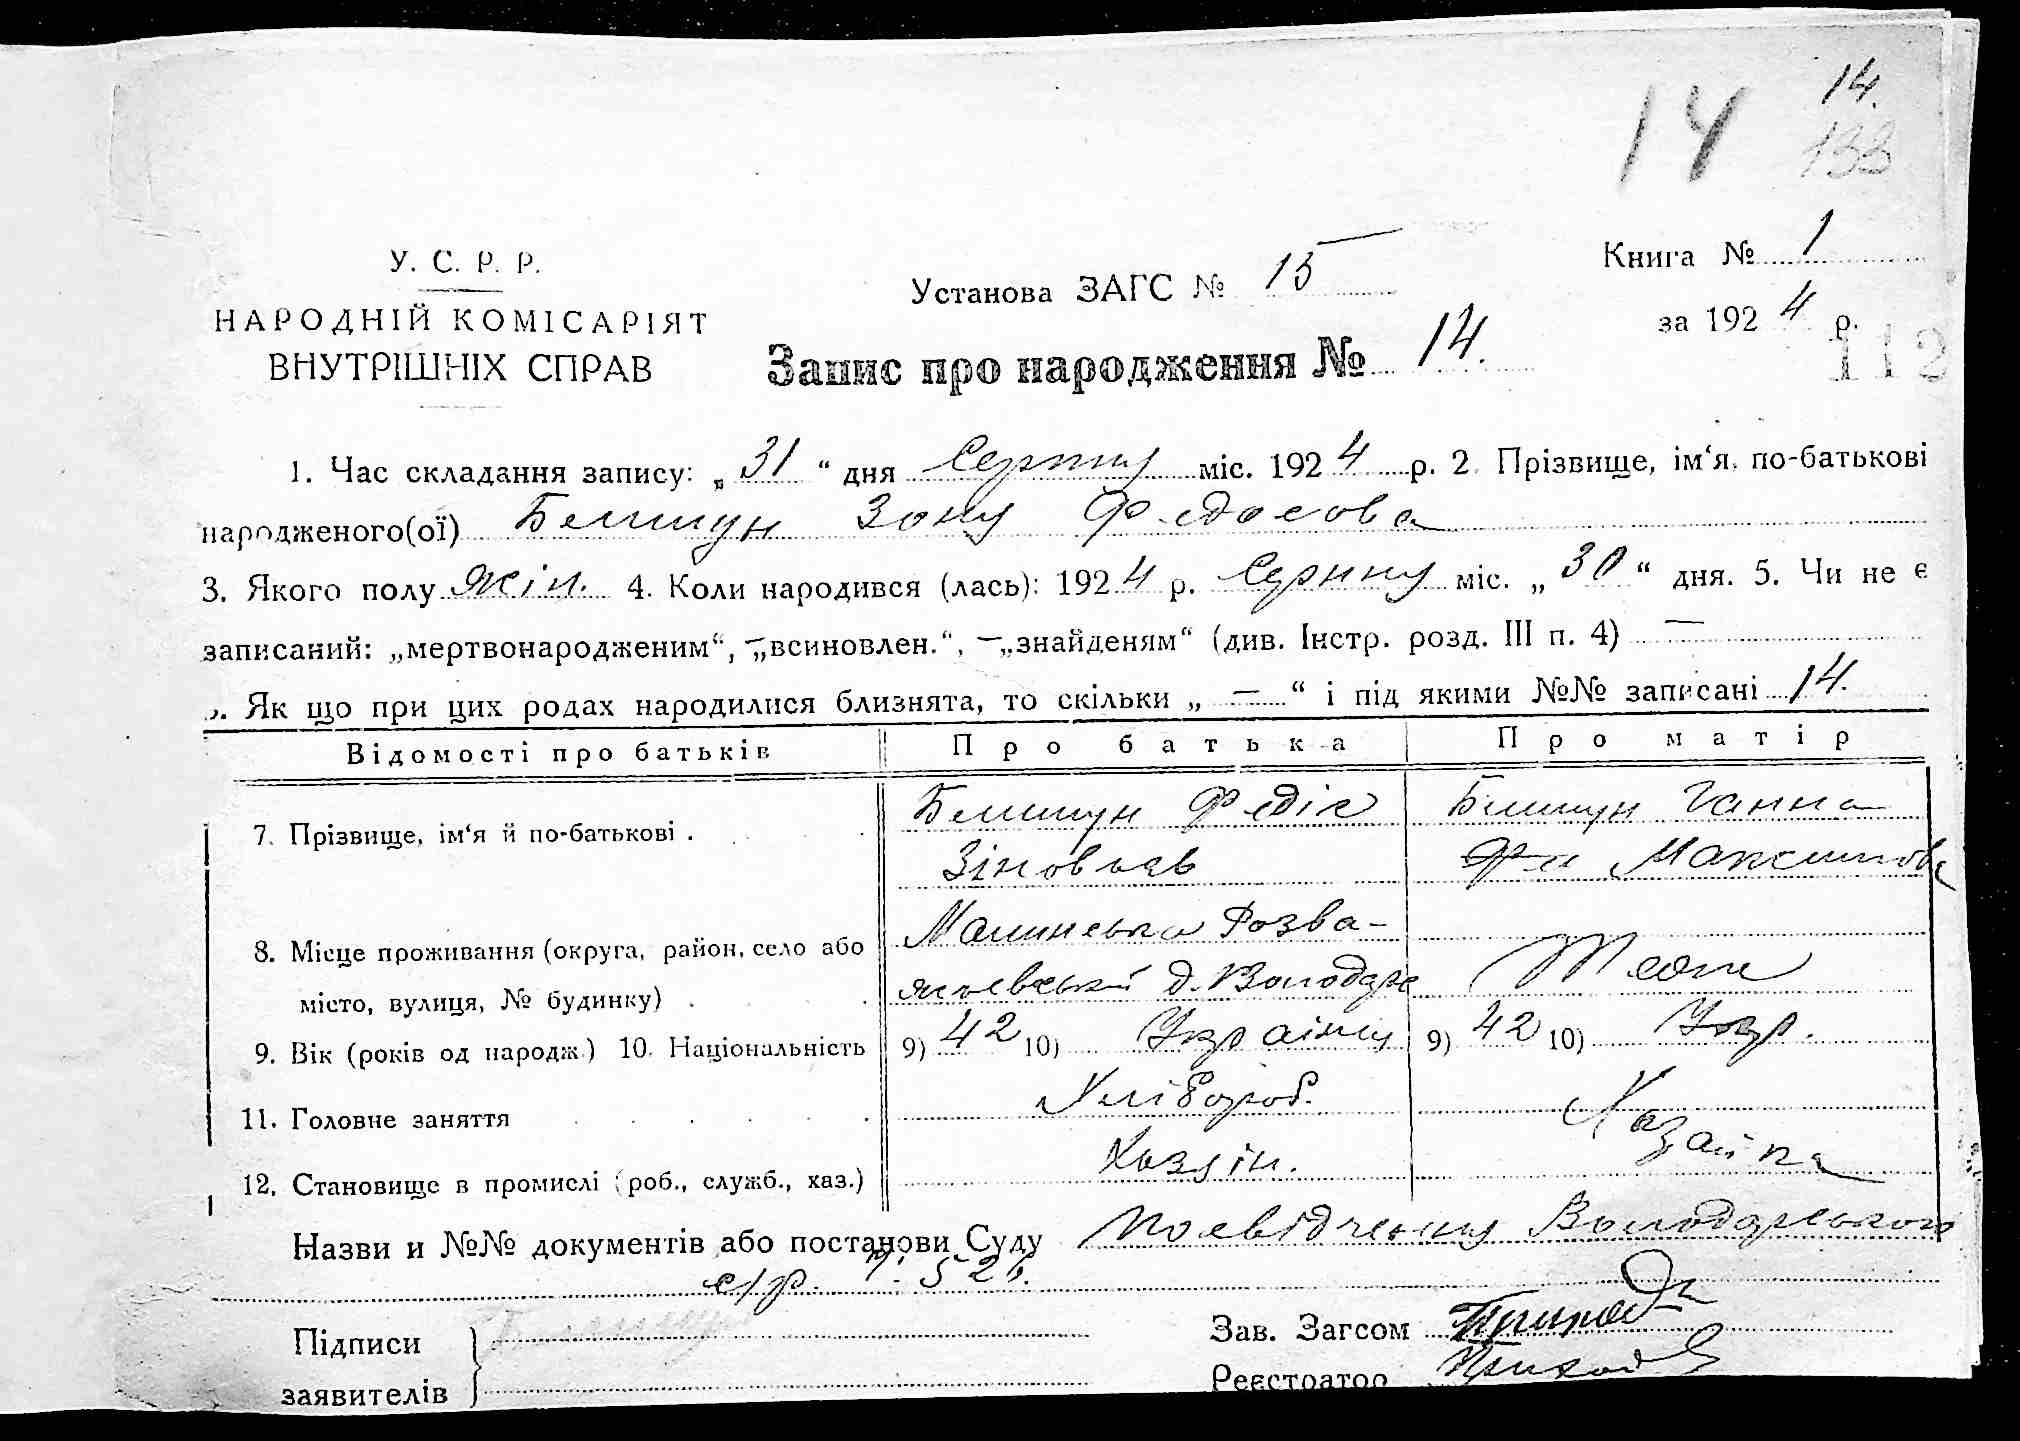 14.
14
133
У. С. Р. Р.
НАРОДНІЙ КОМІСАРІЯТ
ВНУТРІШНІХ СПРАВ
Установа ЗАГС № 15
Книга № 1
за 1924 р.
Запис про народження № 14.
112
1. Час складання запису: „31“ дня Серпня міс. 1924 р. 2. Прізвище, ім‘я, по-батькові
народженого(ої) Зоня Федосова
3. Якого полу жін. 4. Коли народився (лась): 1924 р. Серпня міс. „30“ дня. 5. Чи не є
записаний: „мертвонародженим“, — „всиновлен.“, — „знайденям“ (див. Інстр. розд. III п. 4) —
. Як що при цих родах народилися близнята, то скільки „ — “ і під якими №№ записані 14.
Відомості про батьків Про батька Про матір
7. Прізвище, ім‘я й по-батькові . Федіс Ганна
Зіновьев Максимова
8. Місце проживання (округа, район, село або Малинська Розва-
місто, вулиця, № будинку) . жевський д. Володар Теоже
9. Вік (років од народж.) 10. Національність 9) 42 10) Україній 9) 42 10) Укр.
11. Головне заняття Хлібороб.
12. Становище в промислі (роб., служб., хаз.) Хазяін. Хазайка
Назви и №№ документів або постанови Суду Посвідчення Володарського
с/р. ч. 526.
Підписи
заявителів
Зав. Загсом
Реєстратор